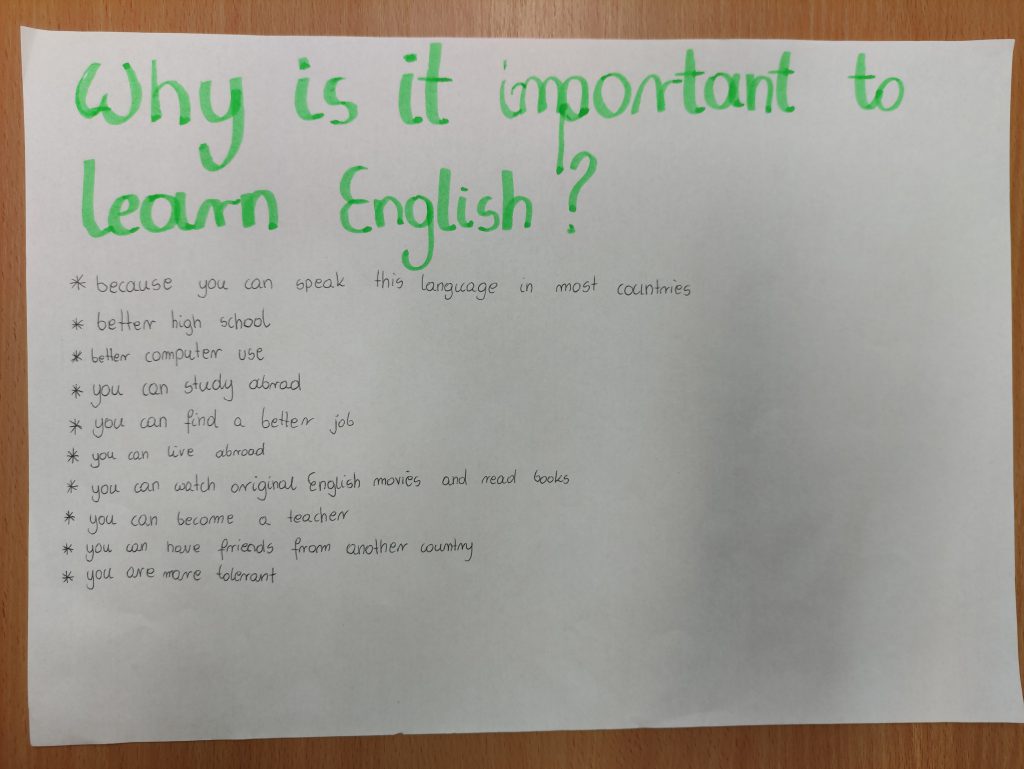 Why is it important to
learn English?
* because you can speak this language in most countries
* better high school
* better computer use
* you can study abrad
* you can find a better job
* you can live abroad
* you can watch original English movies and read books
* you can become a teacher
* you can have friends from another country
* you are more tolerant